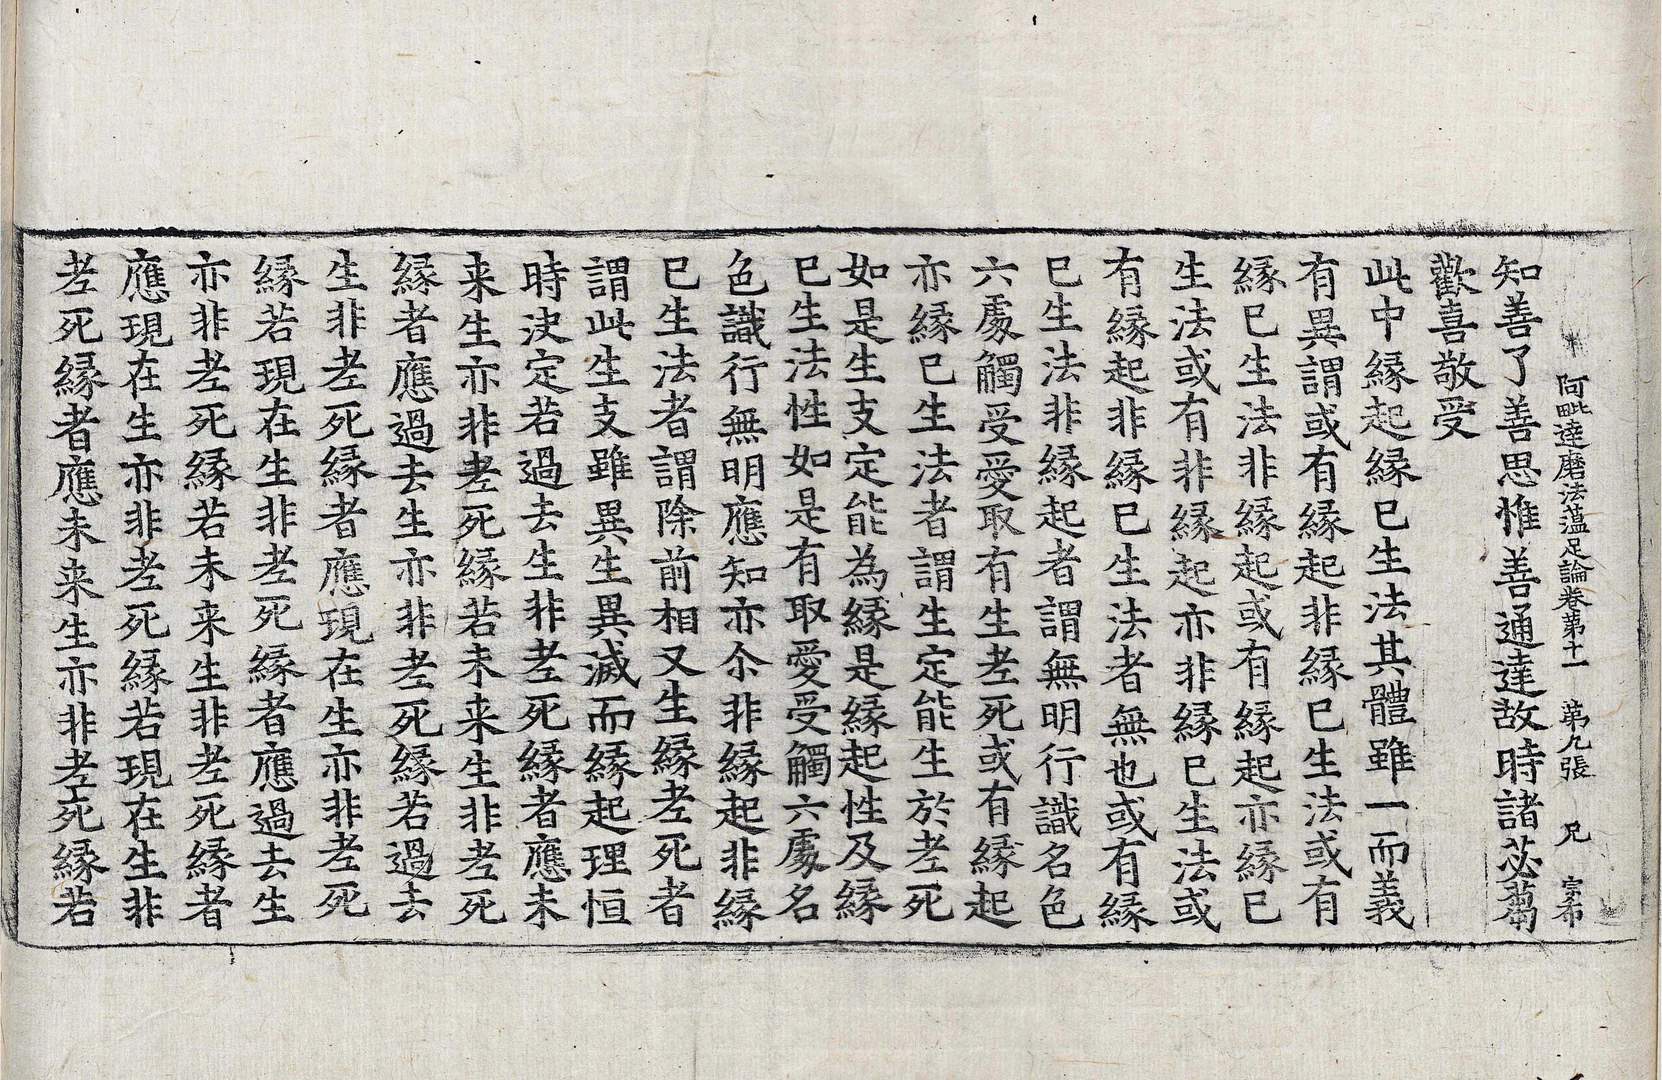 阿毗達磨法蘊足論卷第十一 第九張 兄 宗布
知善了善思惟善通達故時諸苾蒭
歡喜敬受
此中縁起縁已生法其體雖一而義
有異謂或有縁起非縁已生法或有
縁已生法非縁起或有縁起亦縁已
生法或有非縁起亦非縁已生法或
有縁起非縁已生法者無也或有縁
已生法非縁起者謂無明行識名色
六處觸受愛取有生老死或有縁起
亦縁已生法者謂生定能生於老死
如是生支定能為縁是縁起性及縁
已生法性如是有取愛受觸六處名
色識行無明應知亦尒非縁起非縁
已生法者謂除前相又生縁老死者
謂此生支雖異生異滅而縁起理恒
時決定若過去生非老死縁者應未
来生亦非老死縁若未来生非老死
縁者應過去生亦非老死縁若過去
生非老死縁者應現在生亦非老死
縁若現在生非老死縁者應過去生
亦非老死縁若未来生非老死縁者
應現在生亦非老死縁若現在生非
老死縁者應未来生亦非老死縁若